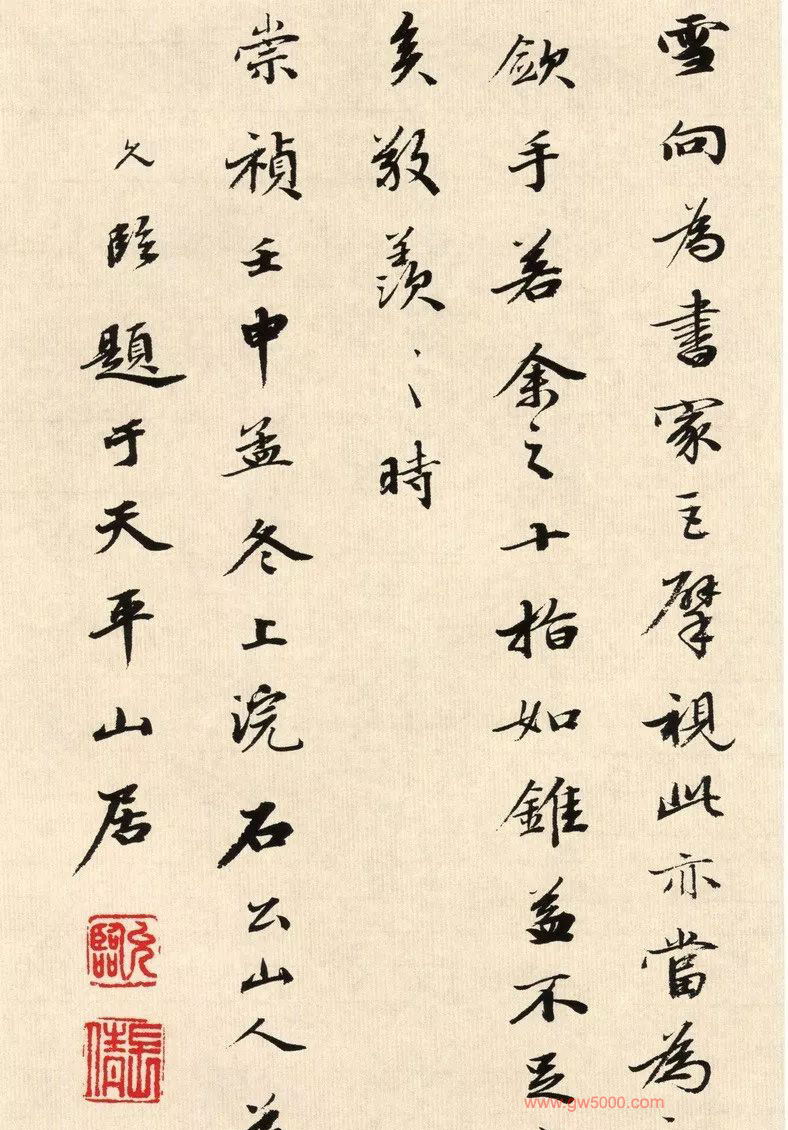 雪向為書家巨擘視此亦當為
歛手若余之十指如錐益不足
矣敬羡〻時
崇禎壬申孟冬上浣石公山人
允臨題于天平山居
允臨
www.gw5000.com